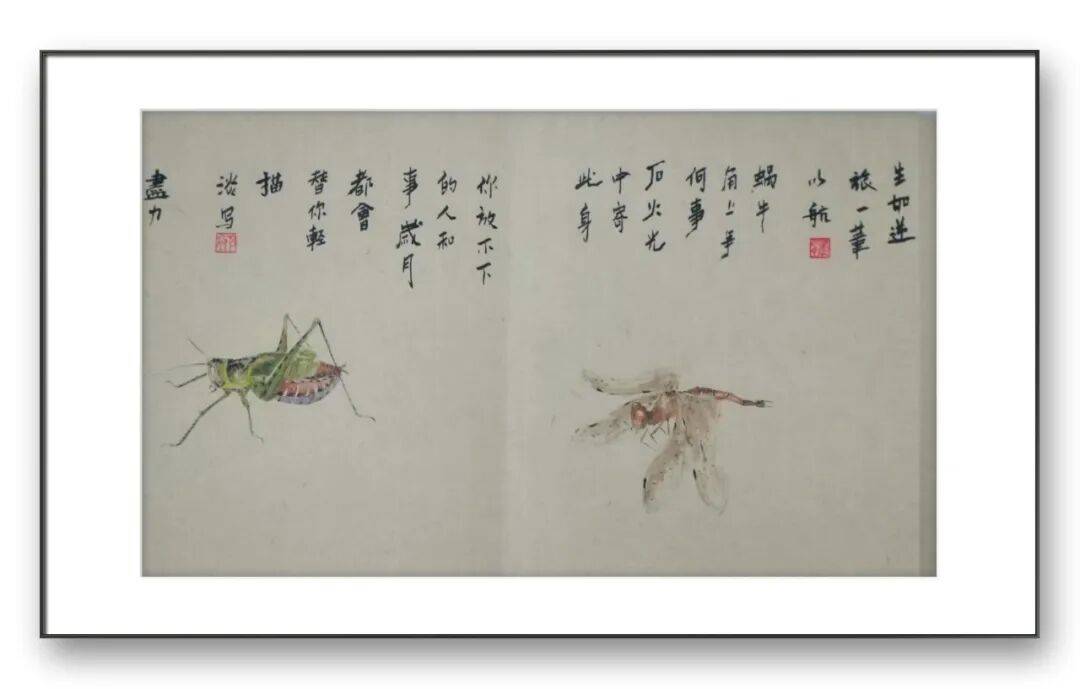 生如逆
旅一葦
以航
蝸牛
角上争
何事
石火光
中寄
此身
你放不下
的人和
事歲月
都會
替你輕
描
淡写
盡力